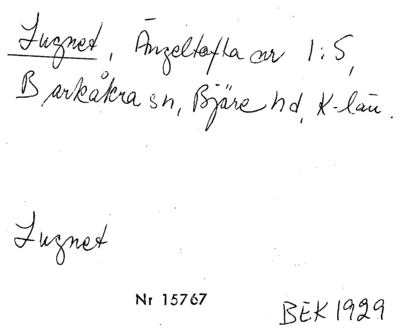 Lugnet, Ängeltofta nr 1:5,
Barkåkra sn, Bjäre hd, K-län.
Lugnet
Nr 15767
BEK 1929